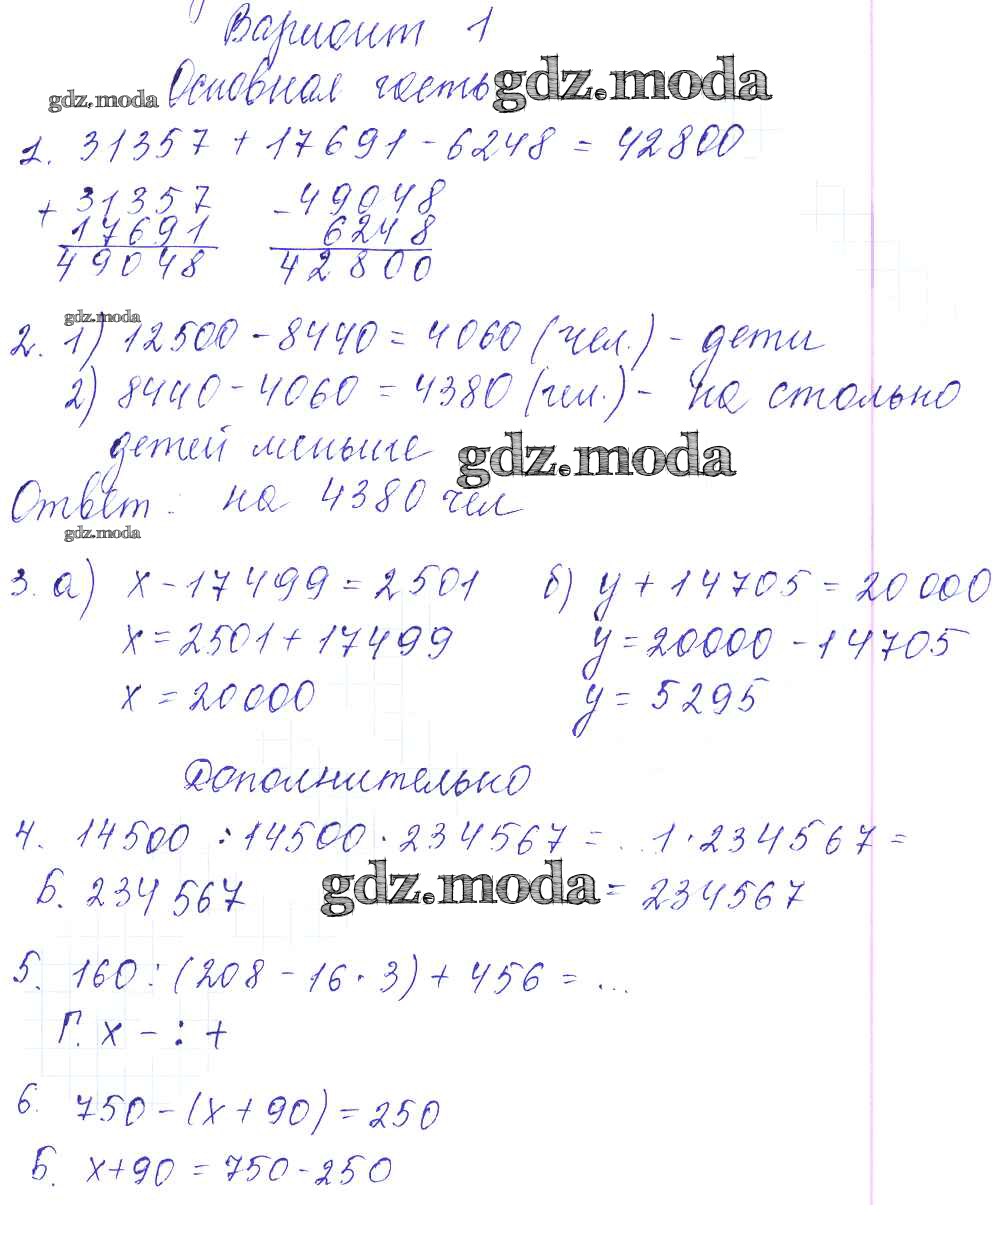 Вариант 1
Основная часть gdz.moda
gdz.moda
1. 31357 + 17691 - 6248 = 42800
+ 31357 - 49048
17691 6248
49048 42800
gdz.moda
2. 1) 12500 - 8440 = 4060 (чел.) - дети
2) 8440 - 4060 = 4380 (чел.) - на столько
детей меньше gdz.moda
Ответ: на 4380 чел
gdz.moda
3. а) x - 17499 = 2501 б) y + 14705 = 20000
x = 2501 + 17499 y = 20000 - 14705
x = 20000 y = 5295
Дополнительно
4. 14500 : 14500 · 234567 = ... 1 · 234567 =
Б. 234567 gdz.moda = 234567
5. 160 : (208 - 16 · 3) + 456 = ...
Г. x - : +
6. 750 - (x + 90) = 250
Б. x + 90 = 750 - 250